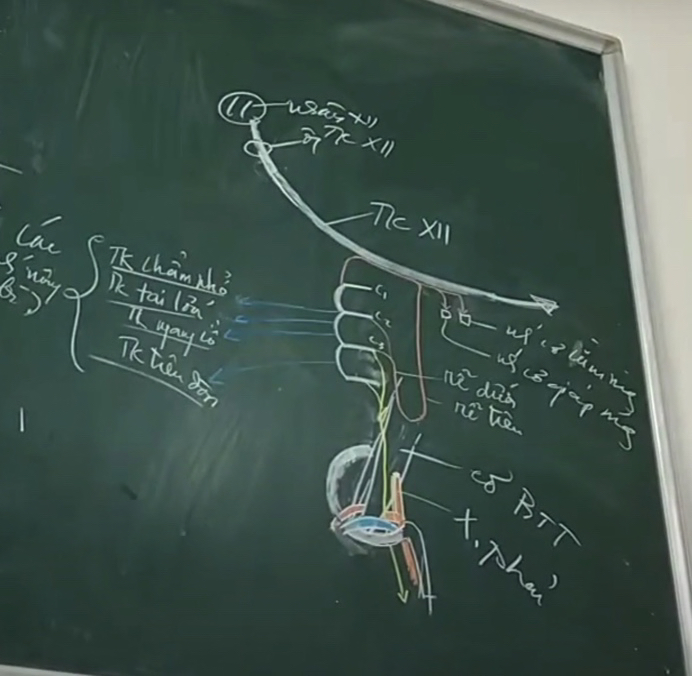 nhân XII
ố TK XII
TK XII
Các
TK chẩm nhỏ
TK tai lớn
TK ngang cổ
TK trên đòn
C1
C2
C3
nh cơ cằm móng
nh cơ giáp móng
rễ dưới
rễ trên
cơ BTT
X. phải